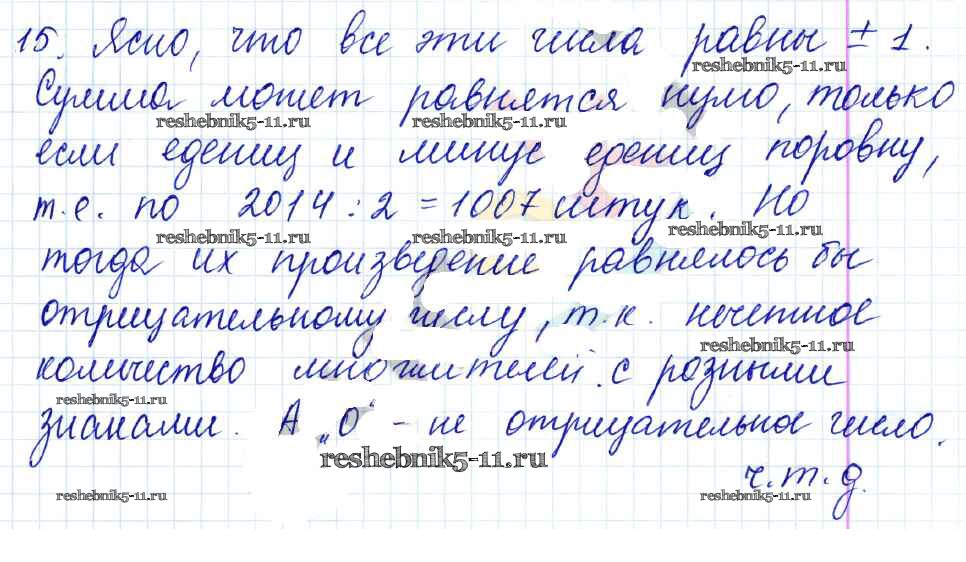 15. Ясно, что все эти числа равны ± 1.
reshebnik5-11.ru
Сумма может равнятся нулю, только
reshebnik5-11.ru reshebnik5-11.ru
если едениц и минус едениц поровну,
т.е. по 2014 : 2 = 1007 штук. Но
reshebnik5-11.ru reshebnik5-11.ru reshebnik5-11.ru
тогда их произведение равнялось бы
отрицательному числу, т.к. нечетное
reshebnik5-11.ru
количество множителей с разными
reshebnik5-11.ru
знаками. А „0“ - не отрицательное число.
reshebnik5-11.ru
ч.т.д.
reshebnik5-11.ru reshebnik5-11.ru